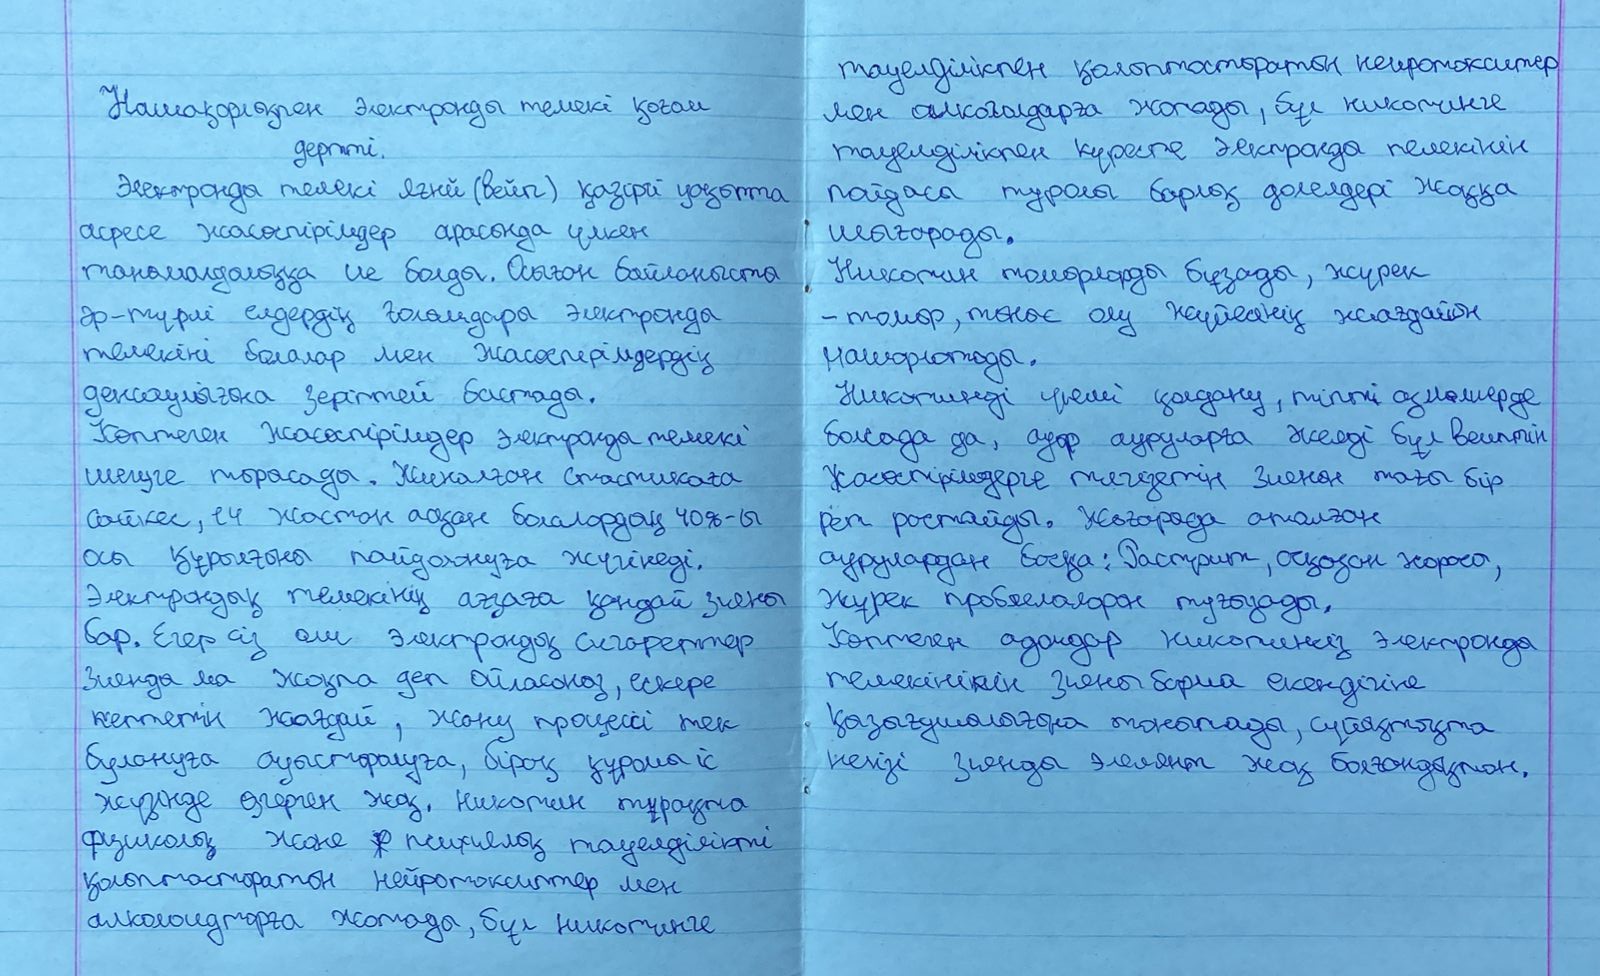 Нашақорлықпен электронды темекі қоғам
дерті.
Электронды темекі яғни (вейп) қазіргі уақытта
асіресе жасөспірімдер арасында үлкен
танымалдылыққа ие болды. Осыған байланысты
әр-түрлі елдердің ғалымдары электронды
темекіні балалар мен жасөспірімдердің
денсаулығына зерттей бастады.
Көптеген жасөспірімдер электронды темекі
шегуге тырасады. Жиналған статикаға
сәйкес, 14 жастан асқан балалардың 40%-ы
осы құрылғыны пайдалнуға жүгінеді.
Электрондық темекінің ағзаға қандай зияны
бар. Егер сіз әлі электрондық сигареттер
зиянды ма жоқпа деп ойласаңыз, ескере
кететін жағдай, жану процессі тек
булануға ауыстырылуға, бірақ құрамы іс
жүзінде өзгерген жоқ. Никотин тұрақты
физикалық және психиялық тәуелділікті
қалыптастыратын нейротокситтер мен
алколоидтарға жатады, бұл никотинге
тәуелділікпен қалыптастыратын нейротокситтер
мен алкологдарға жатады, бұл никотинге
тәуелділікпен күресте электронды темекінін
пайдасы туралы барлық дәлелдері жоққа
шығарады.
Никотин тамырларды бұзады, жүрек
-тамыр, тыныс алу жүйесінің жағдайын
нашарлатады.
Никотинді үнемі қолдану, тіпті азмөлшерде
болсада да, ауыр ауруларға желеді бұл вейптін
жасөспірімдерге тигізетін зиянын тағы бір
рет ростайды. Жоғарыда аталған
аурулардан басқа: Гастрит, асқазан жарасы,
жүрек проблемаларын туғызады.
Көптеген адамдар никотинсіз электронды
темекінікін зияны барма екендігіне
қазығушылығына танытады, сұйықтықта
негізі зиянды элемянт жоқ болғандықтан.